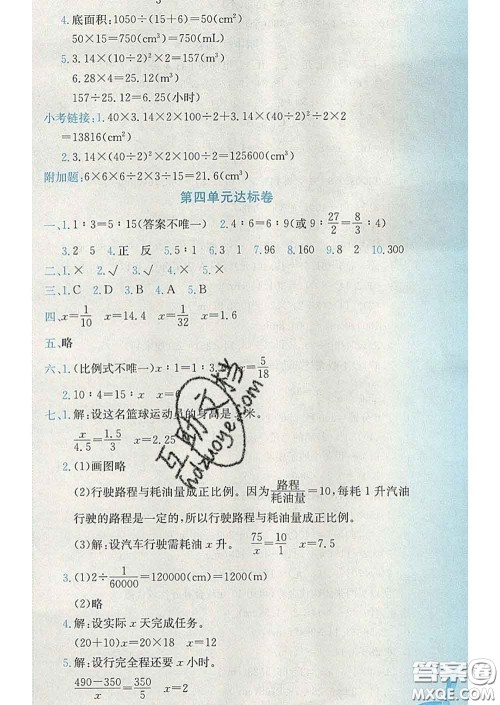 4.底面积:1050÷(15+6)=50(cm²)
50×15=750(cm³)=750(mL)
5.3.14×(40÷2)²×2=157(m³)
6.28×4=25.12(m³)
157÷25.12=6.25(小时)
小考链接:1.40×3.14×2×100÷2+3.14×(40÷2)²÷2×2
=13816(cm²)
2.3.14×(40÷2)²×2×100÷2=125600(cm³)
附加题:6×6×6÷2÷3÷15=21.6(cm³)
第四单元达标卷
一、1.1∶3=5∶15(答案不唯一) 2.4∶6=6∶9(或9∶27/2=8/3∶4)
3.2 5 4.正 反 5.5∶1 6.1∶2 7.96 8.160 9.2 10.300
二、1.× 2.√ 3.√ 4.× 5.×
三、1.C 2.D 3.A 4.A 5.B
四、x=1/10 x=14.4 x=1/32 x=1.6
五、略
六、1.(比例式不唯一)x∶1=1∶3 x=5/18
2.10∶4=15∶x x=6
七、1.解:设这名篮球运动员的身高是x米。
x/4.5=1.5/3 x=2.25
2.(1)画图略
(2)行驶路程与耗油量成正比例。因为路程/耗油量=10,每耗1升汽油
行驶的路程是一定的,所以行驶路程与耗油量成正比例。
(3)解:设汽车行驶需耗油x升。 75/x=10/1 x=7.5
3.(1)2÷1/60000=120000(cm)=1200(m)
(2)略
4.解:设实际x天完成任务。
(20+10)x=20×18 x=12
5.解:设行完全程还要x小时。
490-350/x=350/5 x=2
互助文档
hdzuoye.com
答案圈
MXQE.COM